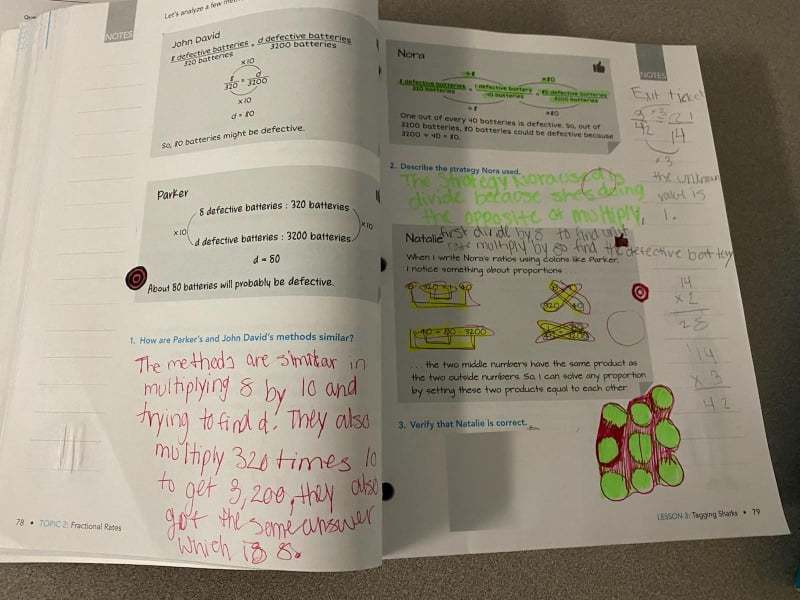 Let's analyze a few
NOTES
John David
8 defective batteries = d defective batteries
320 batteries 3200 batteries
x10
8 = d
320 3200
x10
d = 80
So, 80 batteries might be defective.
Parker
8 defective batteries : 320 batteries
x10 x10
d defective batteries : 3200 batteries
d = 80
About 80 batteries will probably be defective.
1. How are Parker's and John David's methods similar?
The methods are similar in
multiplying 8 by 10 and
trying to find d. They also
multiply 320 times 10
to get 3,200, they also
got the same answer
which is 8.
78 • TOPIC 2: Fractional Rates
Nora
÷8 x80
8 defective batteries = 1 defective battery = 80 defective batteries
320 batteries 40 batteries 3200 batteries
÷8 x80
One out of every 40 batteries is defective. So, out of
3200 batteries, 80 batteries could be defective because
3200 ÷ 40 = 80.
2. Describe the strategy Nora used.
The strategy Nora used is
divide because shes doing
the opposite of multiply.
first divide by 8 to find unit
multiply by 80 find the defective battery
Natalie
When I write Nora's ratios using colons like Parker,
I notice something about proportions . . .
. . . the two middle numbers have the same product as
the two outside numbers. So, I can solve any proportion
by setting these two products equal to each other.
3. Verify that Natalie is correct.
NOTES
Exit ticket
3
42 14
÷3
the unknown
value is
1.
14
x 2
28
14
x 3
42
LESSON 3: Tagging Sharks • 79